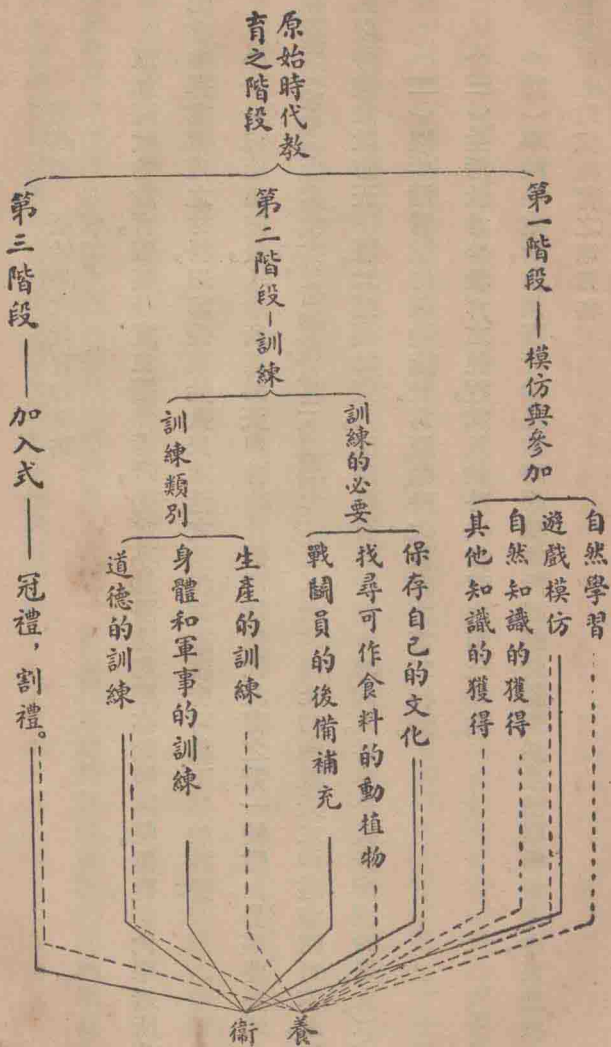 原始時代教
育之階段
第一階段——模仿與參加
自然學習
遊戲模仿
自然知識的獲得
其他知識的獲得
第二階段—訓練
訓練的必要
保存自己的文化
找尋可作食料的動植物
戰鬭員的後備補充
訓練類別
生產的訓練
身體和軍事的訓練
道德的訓練
第三階段——加入式——冠禮，割禮。
養
衞